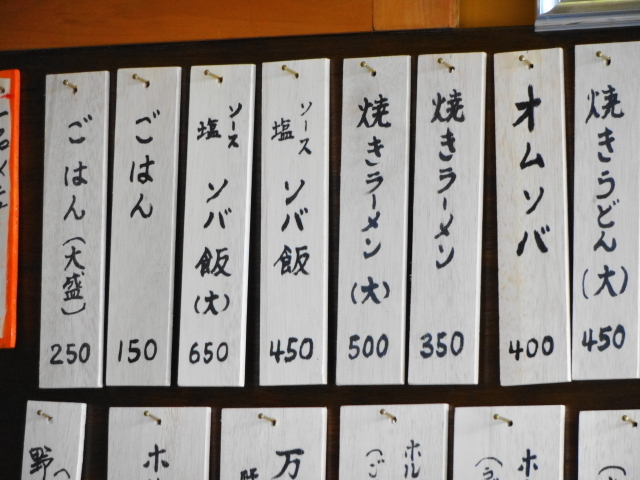 焼きうどん(大) 450
オムソバ 400
焼きラーメン 350
焼きラーメン(大) 500
ソース
塩
ソバ飯 450
ソース
塩
ソバ飯(大) 650
ごはん 150
ごはん(大盛) 250
ホ
ホル
万
ホ
野